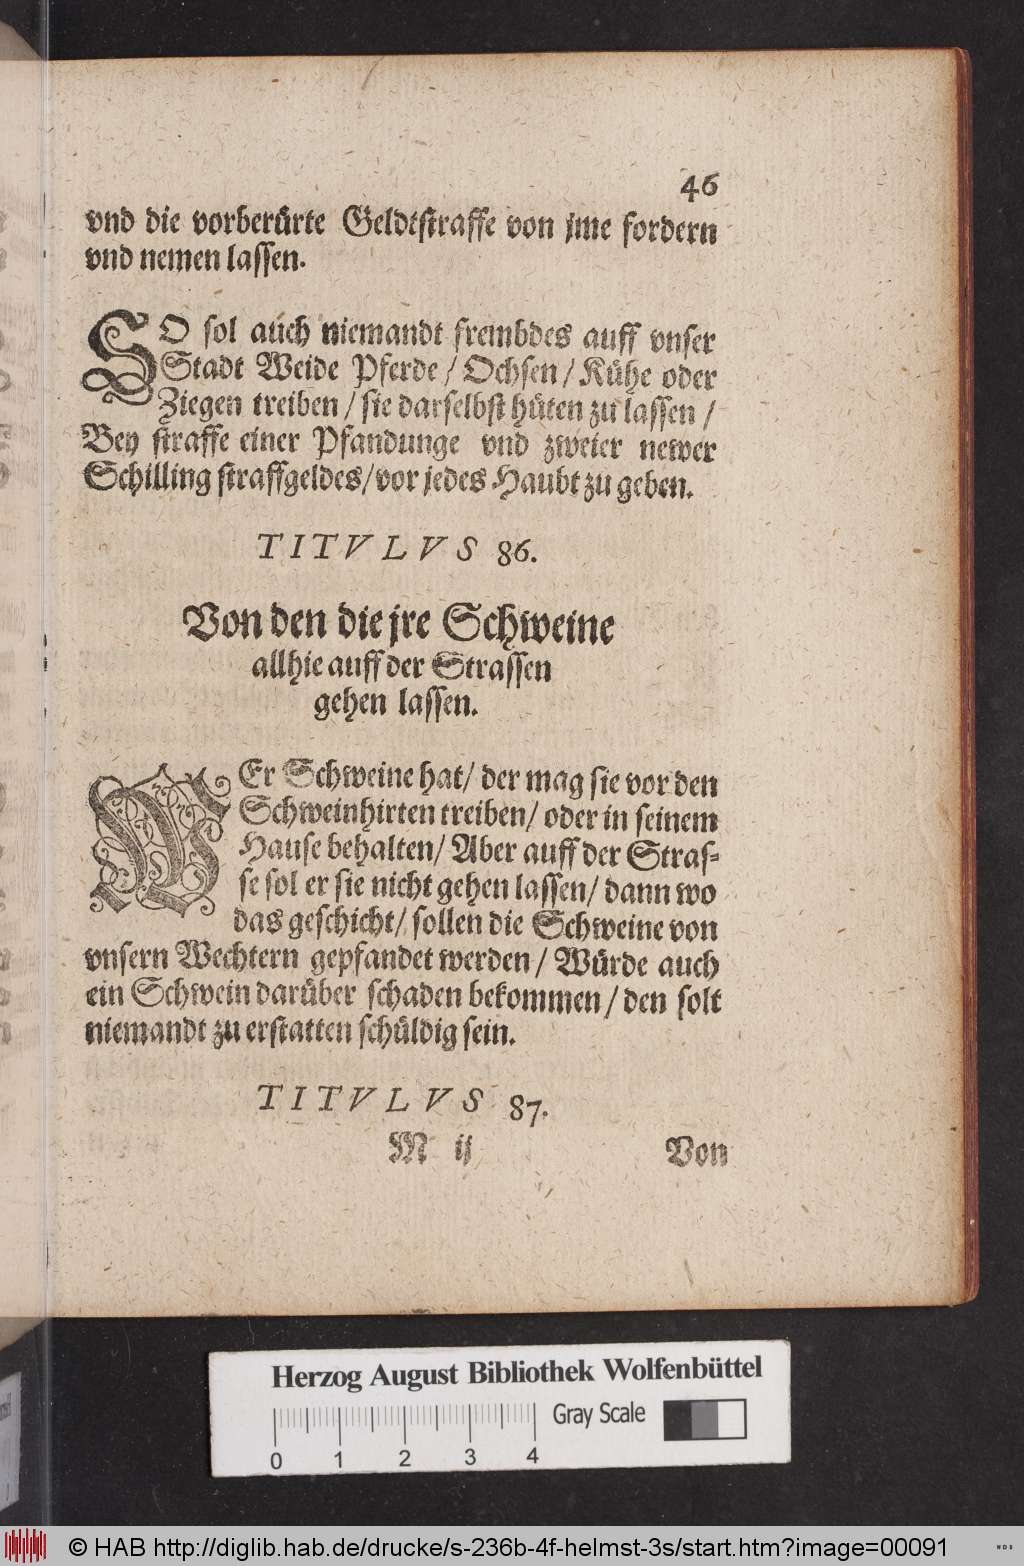 46
vnd die vorberürte Geldtstraffe von jme fordern
vnd nemen lassen.
SO sol auch niemandt frembdes auff vnser
Stadt Weide Pferde / Ochsen / Kühe oder
Ziegen treiben / sie darselbst hüten zu lassen /
Bey straffe einer Pfandunge vnd zweier newer
Schilling straffgeldes / vor jedes Haubt zu geben.
TITVLVS 86.
Von den die jre Schweine
allhie auff der Strassen
gehen lassen.
WEr Schweine hat / der mag sie vor den
Schweinhirten treiben / oder in seinem
Hause behalten / Aber auff der Stras-
se sol er sie nicht gehen lassen / dann wo
das geschicht / sollen die Schweine von
vnsern Wechtern gepfandet werden / Würde auch
ein Schwein darüber schaden bekommen / den solt
niemandt zu erstatten schüldig sein.
TITVLVS 87.
M ij Von
Herzog August Bibliothek Wolfenbüttel
Gray Scale
0 1 2 3 4
© HAB http://diglib.hab.de/drucke/s-236b-4f-helmst-3s/start.htm?image=00091